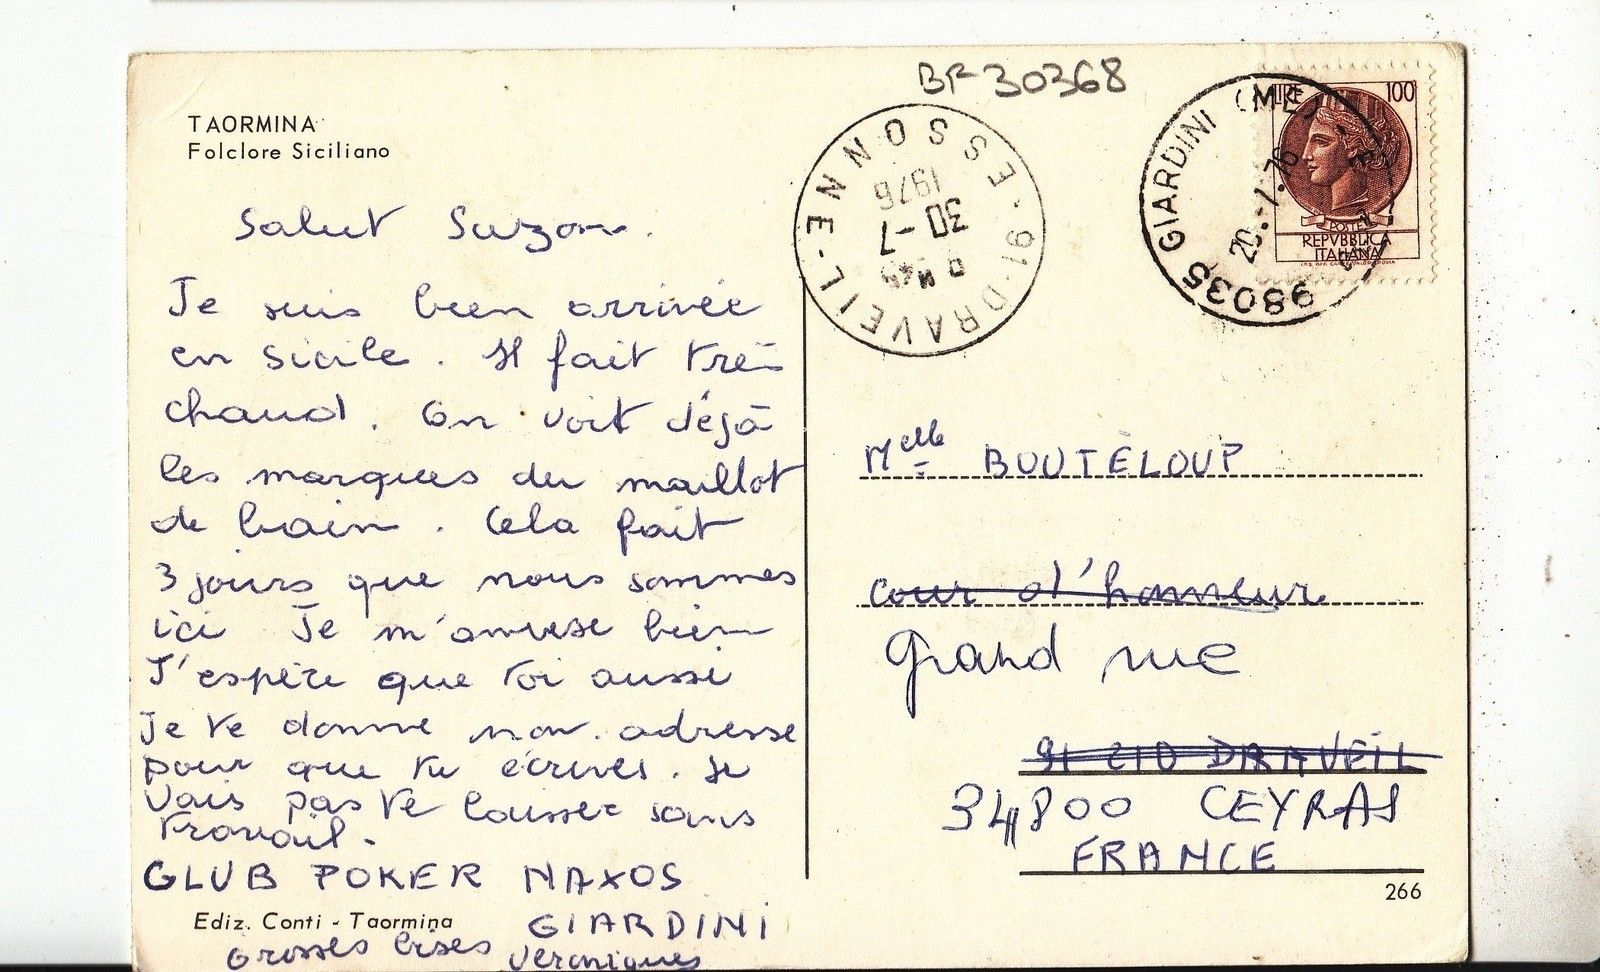 BF 30368
TAORMINA
Folclore Siciliano
Salut Suzon.
Je suis bien arrivée
en Sicile. Il fait très
chaud. On voit déjà
les marques du maillot
de bain. Cela fait
3 jours que nous sommes
ici Je m'amuse bien
J'espère que toi aussi
Je te donne mon adresse
pour que tu écrives. Je
vais pas te laisser sans
travail.
GLUB POKER NAXOS
GIARDINI
Ediz. Conti - Taormina
Grosses bises Véronique
91-DRAVEIL-ESSONNE
30-7
1976
98035 GIARDINI (ME)
20.-7.76
LIRE 100
POSTE
REPVBBLICA
ITALIANA
Melle BOUTELOUP
cour d'honneur
grand rue
91 210 DRAVEIL
34800 CEYRAS
FRANCE
266